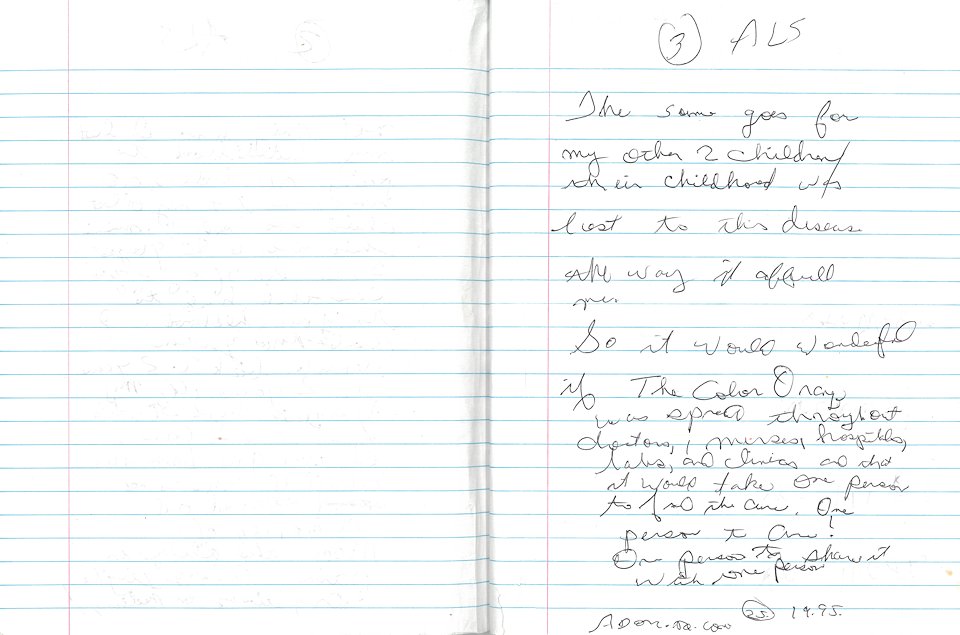 ③ ALS
The same goes for
my other 2 children
their childhood was
lost to this disease
the way it
me.
So it would wonderful
if The Color Orange
was spread throughout
doctors, nurses, hospitals,
labs, and clinics and that
it would take one person
to find the cure. One
person to
One person to share it
with one person
25 19.95.